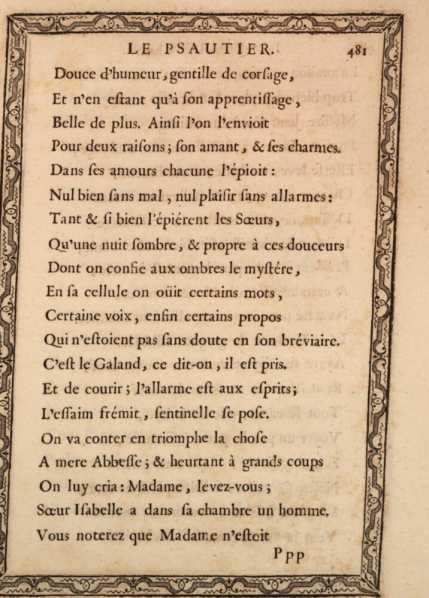 LE PSAUTIER. 481
Douce d'humeur, gentille de corſage,
Et n'en eſtant qu'à ſon apprentiſſage,
Belle de plus. Ainſi l'on l'envioit
Pour deux raiſons; ſon amant, & ſes charmes.
Dans ſes amours chacune l'épioit:
Nul bien ſans mal, nul plaiſir ſans allarmes:
Tant & ſi bien l'épiérent les Sœurs,
Qu'une nuit ſombre, & propre à ces douceurs
Dont on confie aux ombres le myſtére,
En ſa cellule on oüit certains mots,
Certaine voix, enfin certains propos
Qui n'eſtoient pas ſans doute en ſon bréviaire.
C'eſt le Galand, ce dit-on, il eſt pris.
Et de courir; l'allarme eſt aux eſprits;
L'eſſaim frémit, ſentinelle ſe poſe.
On va conter en triomphe la choſe
A mere Abbeſſe; & heurtant à grands coups
On luy cria: Madame, levez-vous;
Sœur Iſabelle a dans ſa chambre un homme.
Vous noterez que Madame n'eſtoit
Ppp